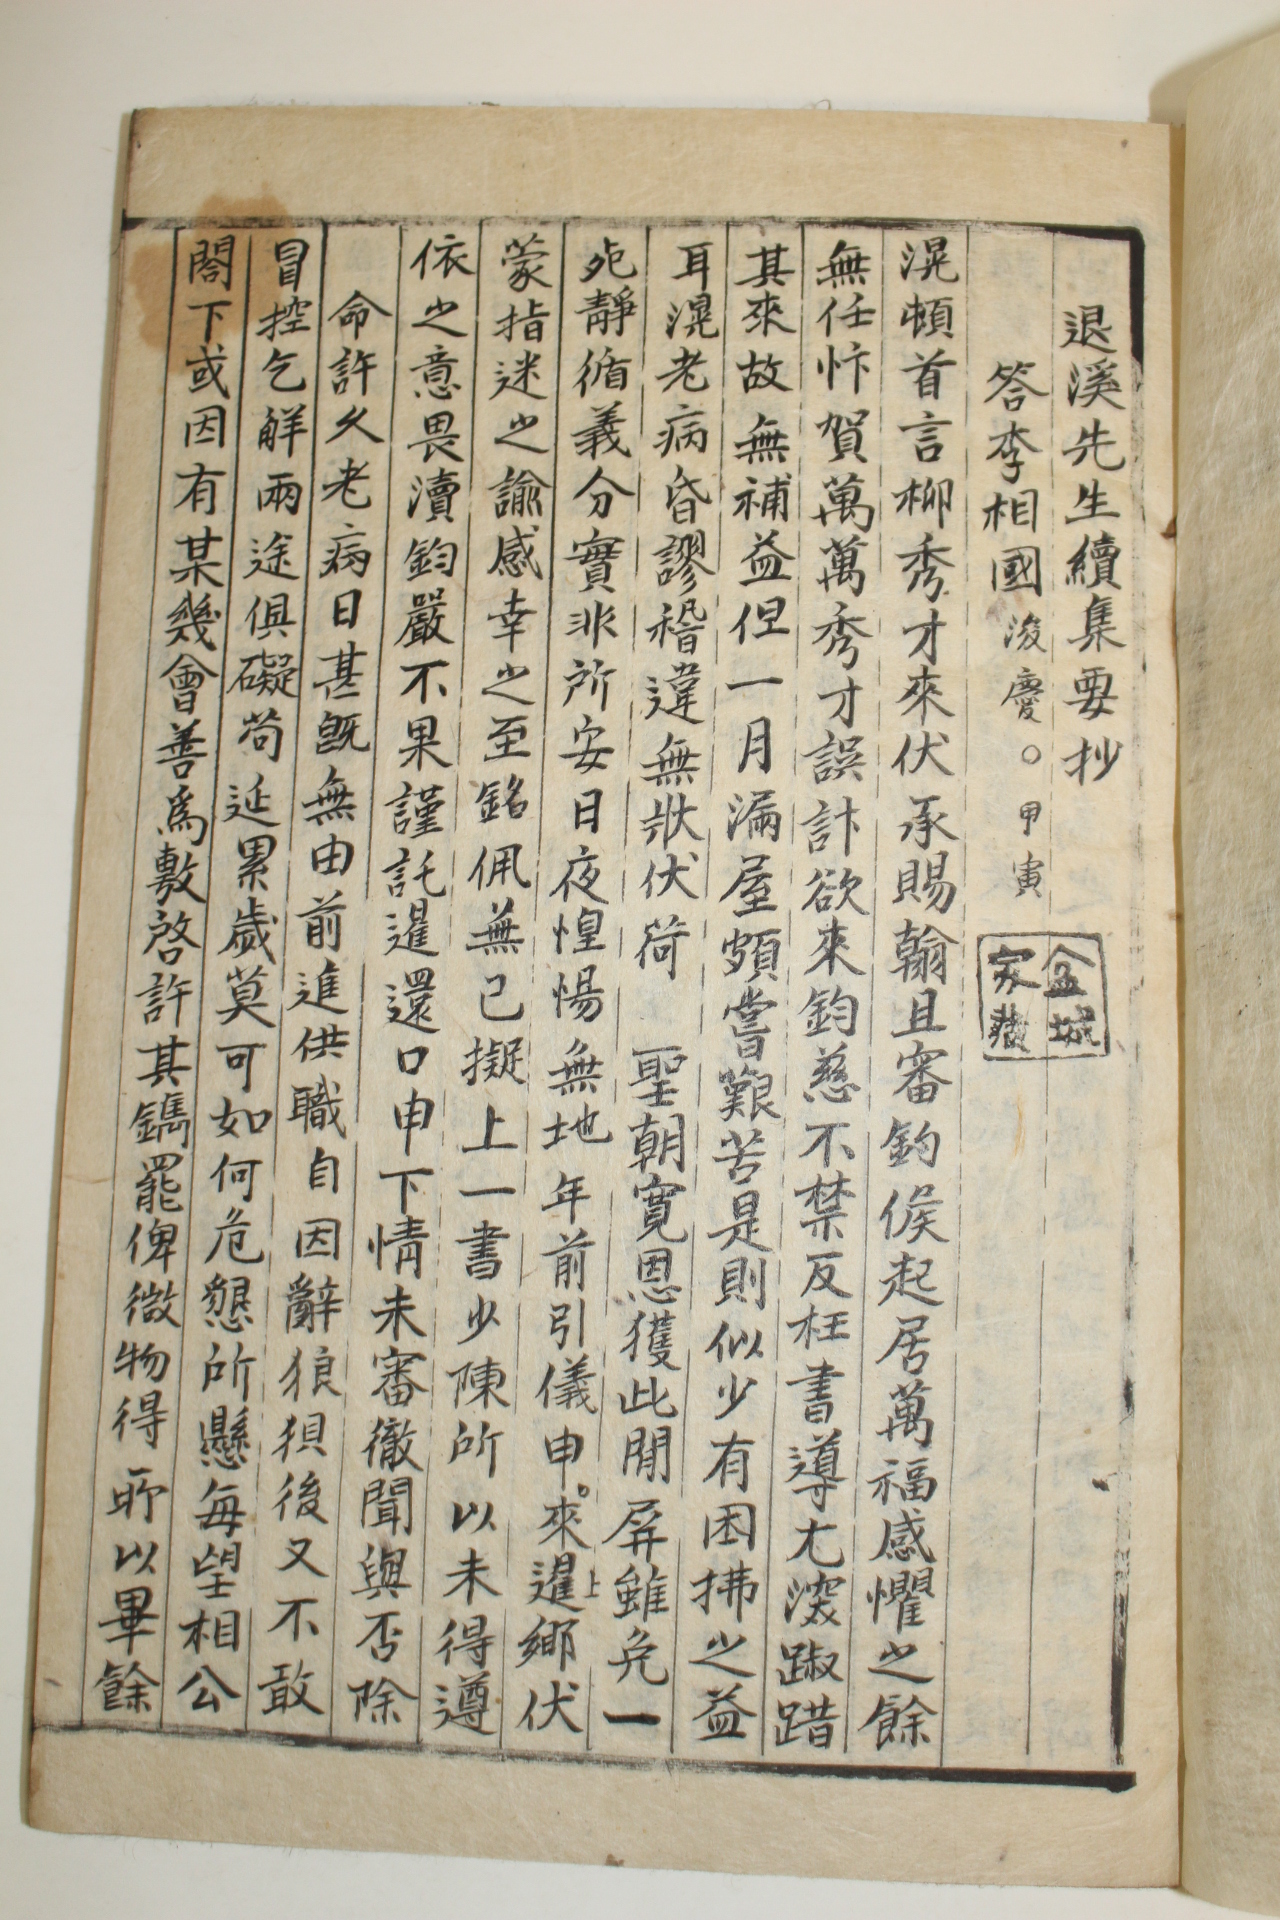 退溪先生續集要抄
答李相國浚慶○甲寅
金城
家藏
滉頓首言柳秀才來伏承賜翰且審鈞候起居萬福感懼之餘
無任忭賀萬萬秀才誤計欲來鈞慈不禁反枉書導尤深踧踖
其來故無補益但一月漏屋頗嘗艱苦是則似少有困拂之益
耳滉老病昏謬稽違無狀伏荷 聖朝寬恩獲此閒屛雖免一
死靜循義分實非所安日夜惶惕無地年前引儀申來暹鄕伏
上
蒙指迷之諭感幸之至銘佩無已擬上一書少陳所以未得遵
依之意畏瀆鈞嚴不果謹託暹還口申下情未審徹聞與否除
命許久老病日甚旣無由前進供職自因辭狼狽後又不敢
冒控乞解兩途俱礙苟延累歲莫可如何危懇所懸每望相公
閤下或因有某幾會善爲敷啓許其鐫罷俾微物得所以畢餘